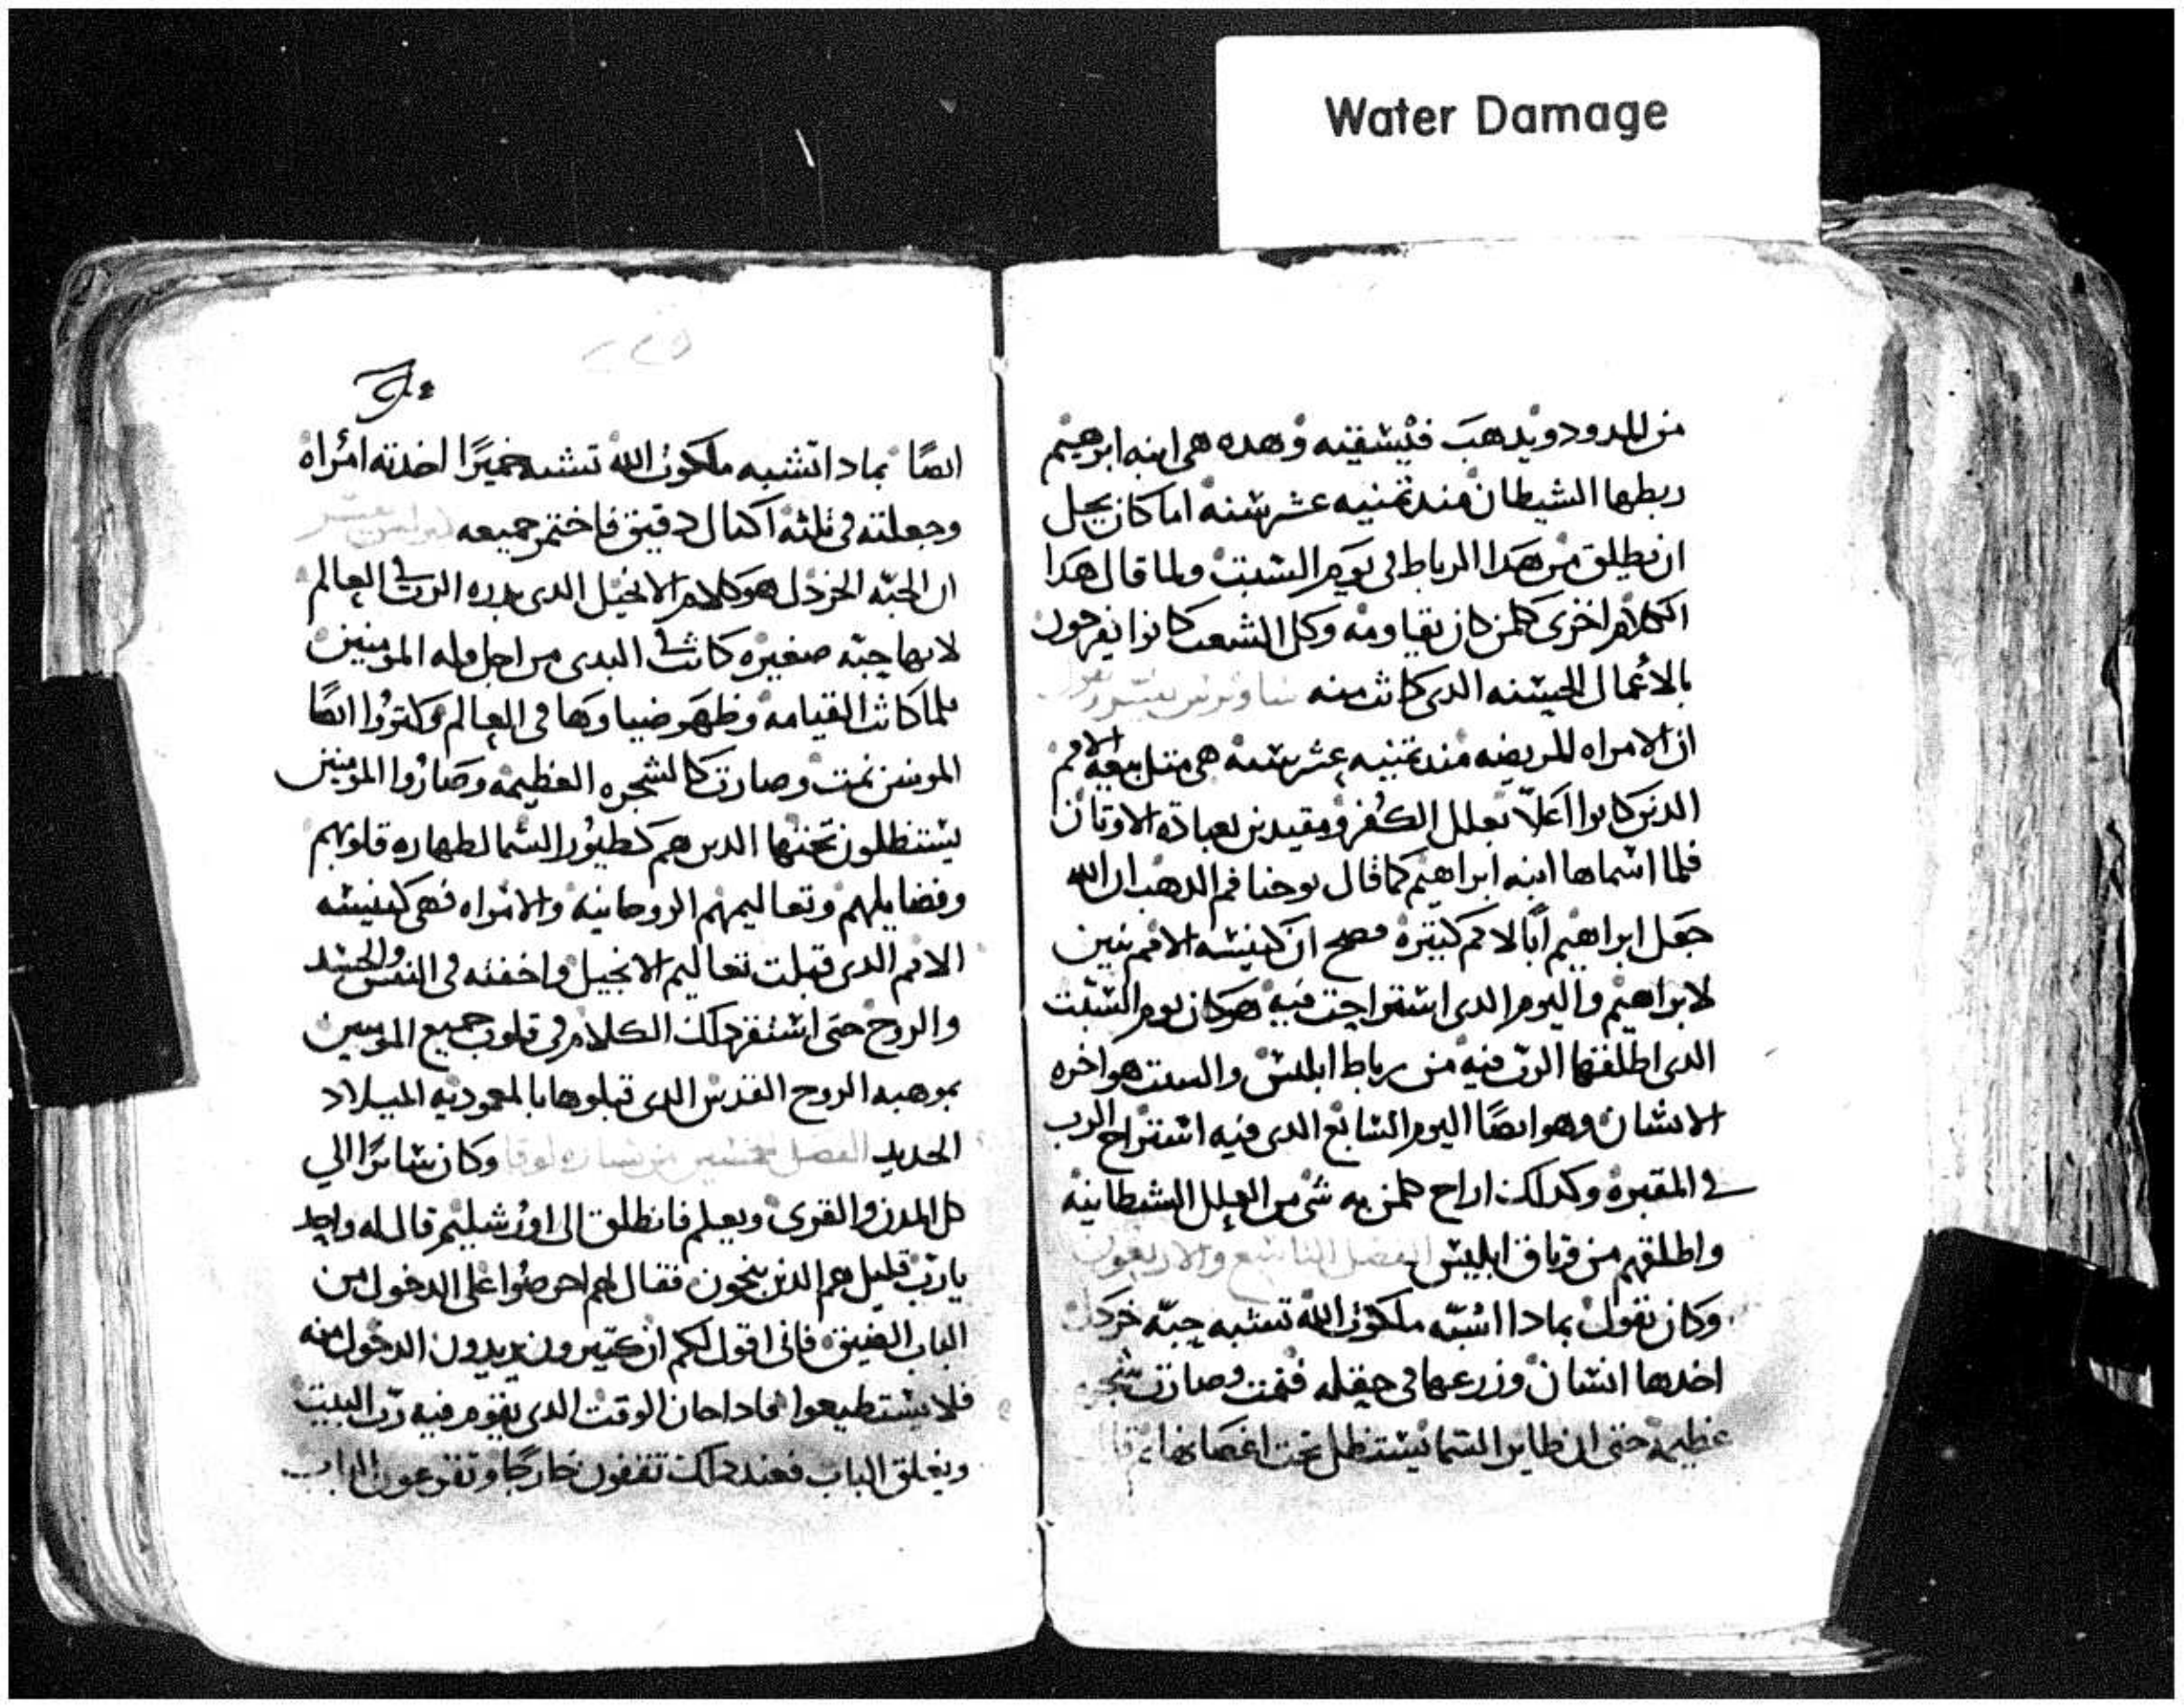 Water Damage
من المدود ويدهب فيسقيه وهده هى ابنه ابرهيم
ربطها الشيطان مند تمنيه عشر سنه اما كان يحل
ان يطلق من هدا الرباط فى يوم السبت ولما قال هدا
الكلام اخزى كلمن كان يقاومه وكل الشعب كانوا يفرحون
بالاعمال الحسنه الدى كانت منه
ان الامراه المريضه مند تمنيه عشر سنه هى مثل بيعه الامم
الدين كانوا اعلا بعلل الكفر ومقيدين بعبادة الاوتان
فلما اسماها ابنه ابراهيم كما قال يوحنا فم الدهب ان الله
جعل ابراهيم ابا لامم كتيره فصح ان كنيسه الامم بنين
لابراهيم واليوم الدى استراحت فيه هو كان يوم السبت
الدى اطلقها الرب فيه من رباط ابليس والسبت هو اخره
الانسان وهو ايضا اليوم السابع الدى فيه استراح الرب
فى المقبره وكدلك اراح كلمن به شى من العلل الشيطانيه
واطلقهم من وتاق ابليس الفصل التاسع والاربعون
وكان يقول بمادا اشبه ملكوت الله تشبه حبه خردل
اخدها انسان وزرعها فى حقله فنمت وصارت شجره
عظيمه حتى ان طاير السما يستظل تحت اغصانها تم قال
ايضا بمادا اشبه ملكوت الله تشبه خميرا اخدته امراه
وجعلته فى ثلثه اكيال دقيق فاختمر جميعه
ان الحبه الخردل هو كلام الانجيل الدى بدره الرب فى العالم
لانها حبه صغيره كانت فى البدى من اجل قله المومنين
فلما كانت القيامه وظهر ضياوها فى العالم وكتروا ايضا
المومنين نمت وصارت كالشجره العظيمه وصاروا المومنين
يستظلون تحتها الدين هم كطيور السما لطهاره قلوبهم
وفضايلهم وتعاليمهم الروحانيه والامراه فهى كنيسه
الامم الدى قبلت تعاليم الانجيل واخفته فى النفس والجسد
والروح حتى استقر دلك الكلام فى قلوب جميع المومنين
بموهبه الروح القدس الدى قبلوها بالمعموديه الميلاد
الجديد الفصل الخمسين من بشاره لوقا وكان سايرا الى
كل المدن والقرى ويعلم فانطلق الى اورشليم قال له واحد
يارب قليل هم الدين ينجون فقال لهم احرصوا على الدخول من
الباب الضيق فانى اقول لكم ان كتيرون يريدون الدخول منه
فلا يستطيعوا فادا حان الوقت الدى يقوم فيه رب البيت
ويغلق الباب فعند دلك تقفون خارجا وتقرعون الباب